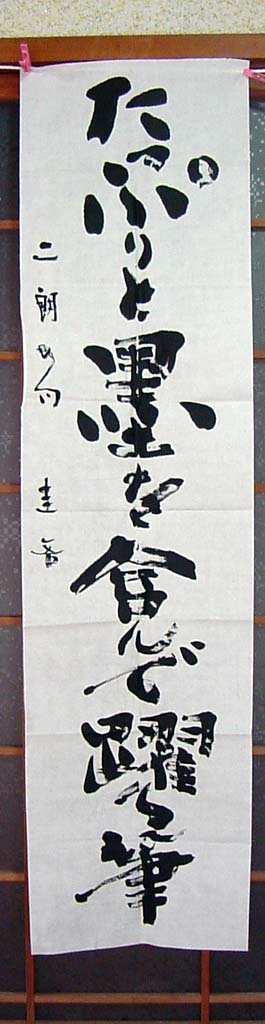 たっぷりと墨を含んで躍る筆
二朗の句 圭香